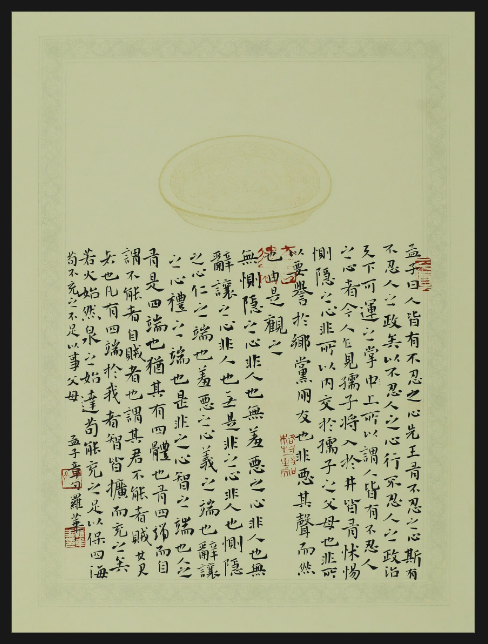 孟子曰人皆有不忍之心先王有不忍之心斯有
不忍人之政矣以不忍人之心行不忍人之政治
天下可運之掌中上所以謂人皆有不忍人
之心者今人乍見孺子將入於井皆有怵惕
惻隱之心非所以內交於孺子之父母也非所
以要譽於鄉黨朋友也非惡其聲而然
也由是觀之
無惻隱之心非人也無羞惡之心非人也無
辭讓之心非人也無是非之心非人也惻隱
之心仁之端也羞惡之心義之端也辭讓
之心禮之端也是非之心智之端也人之
有是四端也猶其有四體也有四端而自
謂不能者自賊者也謂其君不能者賊其君
者也凡有四端於我者智皆擴而充之矣
若火始然泉之始達苟能充之足以保四海
苟不充之不足以事父母
孟子章句羅